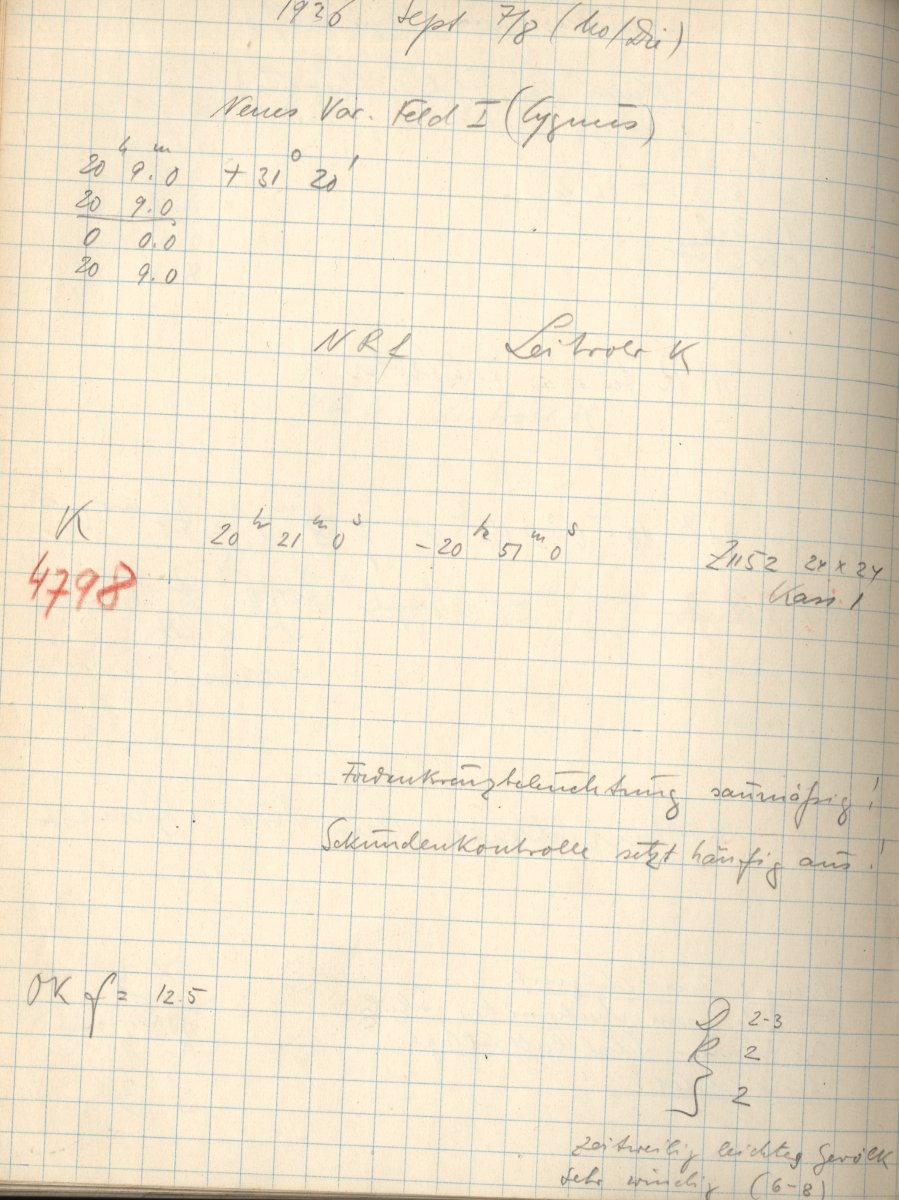 1926 Sept 7/8 (Mo/Die)
Neues Var. Feld I (Cygnus)
20h 9.m0 + 31° 20'
20 9.0
0 0.0
20 9.0
NRf Leitrohr K
K 20h 21m 0s -20h 51m 0s
Z1152 24 x 24
4798 Kass. 1
Fadenkreuzbeleuchtung saumäßig!
Sekundenkontrolle setzt häufig aus!
OK f = 12.5
D 2-3
R 2
S 2
zeitweilig leichtes Gewölk
sehr windig (6-8)